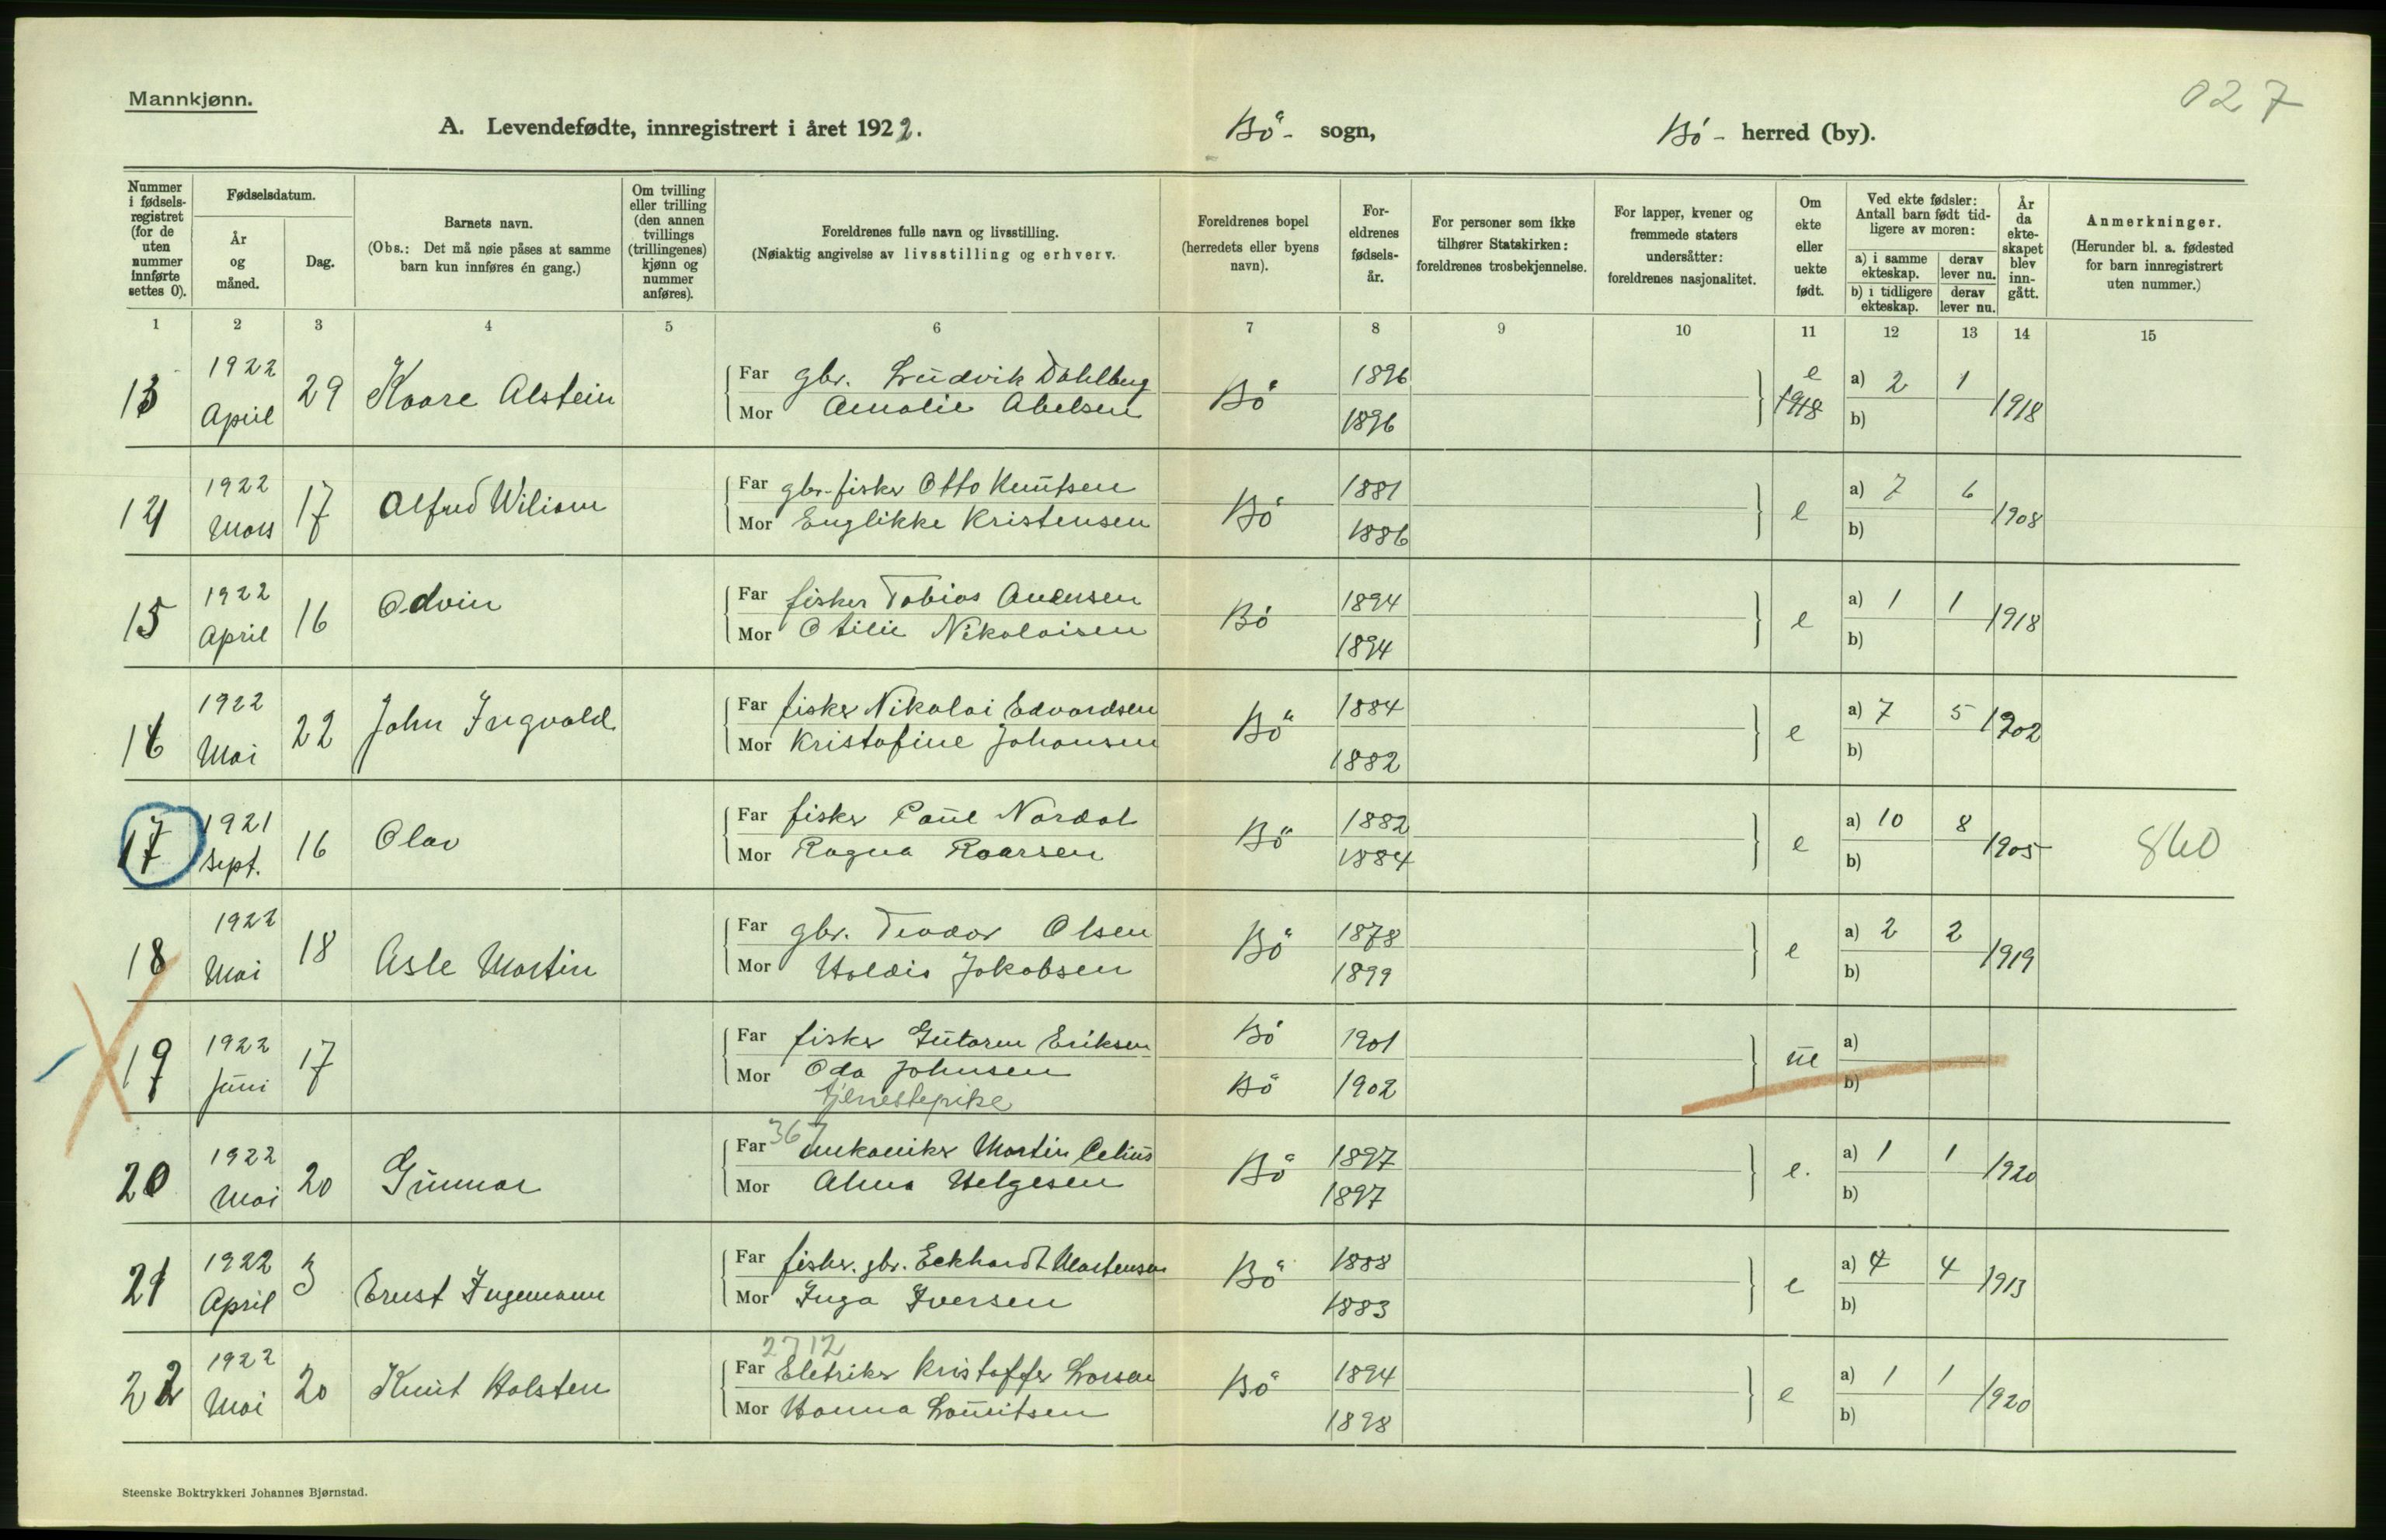 Mannkjønn.
027
A. Levendefødte, innregistrert i året 1922. Bø- sogn, Bø- herred (by).
Nummer i fødselsregistret (for de uten nummer innførte settes 0).
Fødselsdatum.
År og måned.
Dag.
Barnets navn.
(Obs.: Det må nøie påses at samme barn kun innføres én gang.)
Om tvilling eller trilling (den annen tvillings (trillingenes) kjønn og nummer anføres).
Foreldrenes fulle navn og livsstilling.
(Nøiaktig angivelse av livsstilling og erhverv.
Foreldrenes bopel (herredets eller byens navn).
Foreldrenes fødselsår.
For personer som ikke tilhører Statskirken: foreldrenes trosbekjennelse.
For lapper, kvener og fremmede staters undersåtter: foreldrenes nasjonalitet.
Om ekte eller uekte født.
Ved ekte fødsler: Antall barn født tidligere av moren:
a) i samme ekteskap. derav lever nu.
b) i tidligere ekteskap. derav lever nu.
År da ekteskapet blev inngått.
Anmerkninger.
(Herunder bl. a. fødested for barn innregistrert uten nummer.)
1 2 3 4 5 6 7 8 9 10 11 12 13 14 15
13 1922 April 29 Kaare Alstein
Far gbr. Ludvik Dahlberg Bø 1896 e a) 2 1 1918
Mor Amalie Abelsen 1896 1918 b)
14 1922 Mars 17 Alfred Wiliam
Far gbr. fisker Otto Knutsen Bø 1881 e a) 7 6 1908
Mor Englikke Kristensen 1886 b)
15 1922 April 16 Odvin
Far fisker Tobias Andersen Bø 1894 e a) 1 1 1918
Mor Otilie Nikolaisen 1894 b)
16 1922 Mai 22 John Ingvald
Far fisker Nikolai Edvardsen Bø 1884 e a) 7 5 1902
Mor Kristofine Johansen 1882 b)
17 1921 Sept. 16 Olav
Far fisker Paul Nordal Bø 1882 e a) 10 8 1905 860
Mor Ragna Roarsen 1884 b)
18 1922 Mai 18 Asle Martin
Far gbr. Teodor Olsen Bø 1878 e a) 2 2 1919
Mor Haldis Jakobsen 1899 b)
19 1922 Juni 17
Far fisker Gutorm Eriksen Bø 1901 ue a)
Mor Oda Johnsen Bø 1902 b)
tjenestepike
367
20 1922 Mai 20 Gunnar
Far mekaniker Martin Celius Bø 1897 e. a) 1 1 1920
Mor Alma Helgesen 1897 b)
21 1922 April 3 Ernst Ingemann
Far fisker. gbr. Eckhardt Martensen Bø 1888 e a) 4 4 1913
Mor Inga Iversen 1883 b)
2712
22 1922 Mai 20 Knut Halsten
Far Eletriker Kristoffer Larsen Bø 1894 e a) 1 1 1920
Mor Hanna Lauritsen 1898 b)
Steenske Boktrykkeri Johannes Bjørnstad.